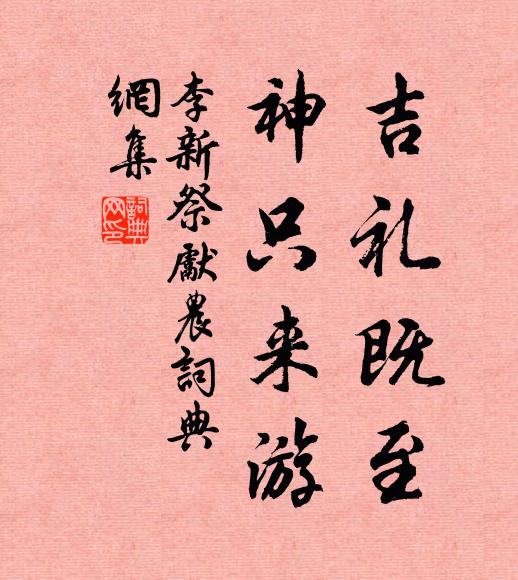 吉礼既至
神只来游
李新祭獻農詞典
網集
詞典
网印